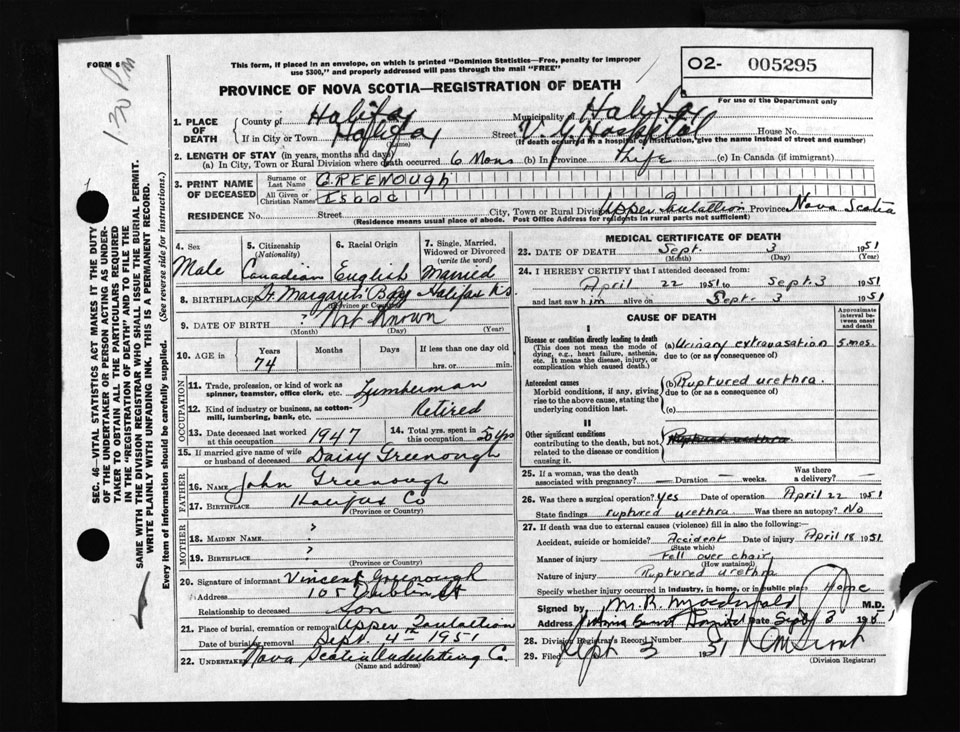 FORM 6
1.30 PM
This form, if placed in an envelope, on which is printed "Dominion Statistics—Free, penalty for improper
use $300," and properly addressed will pass through the mail "FREE"
PROVINCE OF NOVA SCOTIA—REGISTRATION OF DEATH
O2- 005295
For use of the Department only
1. PLACE OF DEATH County of Halifax Municipality of Halifax
If in City or Town Halifax (Name) Street V. G. Hospital House No.
(If death occurred in a hospital or institution, give the name instead of street and number)
2. LENGTH OF STAY (in years, months and days)
(a) In City, Town or Rural Division where death occurred 6 Mons (b) In Province Life (c) In Canada (if immigrant)
3. PRINT NAME OF DECEASED Surname or Last Name GREENOUGH
All Given or Christian Names Isaac
RESIDENCE No. Street City, Town or Rural Division Upper Province Nova Scotia
(Residence means usual place of abode. Post Office Address for residents in rural parts not sufficient)
SEC. 46—VITAL STATISTICS ACT MAKES IT THE DUTY
OF THE UNDERTAKER OR PERSON ACTING AS UNDER-
TAKER TO OBTAIN ALL THE PARTICULARS REQUIRED
IN THE "REGISTRATION OF DEATH" AND TO FILE THE
SAME WITH THE DIVISION REGISTRAR WHO SHALL ISSUE THE BURIAL PERMIT.
WRITE PLAINLY WITH UNFADING INK. THIS IS A PERMANENT RECORD.
Every item of information should be carefully supplied. (See reverse side for instructions.)
4. Sex Male
5. Citizenship (Nationality) Canadian
6. Racial Origin English
7. Single, Married, Widowed or Divorced (write the word) Married
8. BIRTHPLACE St. Margarets Bay Halifax N.S.
(Province or Country)
9. DATE OF BIRTH ? Not Known
(Month) (Day) (Year)
10. AGE in Years 74 Months Days If less than one day old
hrs. or min.
OCCUPATION
11. Trade, profession, or kind of work as
spinner, teamster, office clerk, etc. Lumberman
12. Kind of industry or business, as cotton-
mill, lumbering, bank, etc. Retired
13. Date deceased last worked
at this occupation 1947
14. Total yrs. spent in
this occupation 50 yrs
15. If married give name of wife
or husband of deceased Daisy Greenough
FATHER
16. NAME John Greenough
17. BIRTHPLACE Halifax Co
(Province or Country)
MOTHER
18. MAIDEN NAME ?
19. BIRTHPLACE ?
(Province or Country)
20. Signature of informant Vincent Greenough
Address 105 Dublin St
Relationship to deceased Son
21. Place of burial, cremation or removal Upper
Date of burial or removal Sept. 4th 1951
22. UNDERTAKER Nova Scotia Undertaking C.
(Name and address)
MEDICAL CERTIFICATE OF DEATH
23. DATE OF DEATH Sept. 3 1951
(Month) (Day) (Year)
24. I HEREBY CERTIFY that I attended deceased from:
April 22 1951 to Sept. 3 1951
and last saw him alive on Sept. 3 1951
CAUSE OF DEATH
Approximate interval between onset and death
I
Disease or condition directly leading to death
(This does not mean the mode of
dying, e.g., heart failure, asthenia,
etc. It means the disease, injury, or
complication which caused death.)
(a) Urinary extravasation 5 mos.
due to (or as consequence of)
Antecedent causes
Morbid conditions, if any, giving
rise to the above cause, stating the
underlying condition last.
(b) Ruptured urethra.
due to (or as consequence of)
(c)
II
Other significant conditions
contributing to the death, but not
related to the disease or condition
causing it.
Ruptured urethra
25. If a woman, was the death
associated with pregnancy? Duration weeks. Was there a delivery?
26. Was there a surgical operation? Yes Date of operation April 22 1951
State findings ruptured urethra. Was there an autopsy? No
27. If death was due to external causes (violence) fill in also the following:—
Accident, suicide or homicide? Accident Date of injury April 18 1951
(State which)
Manner of injury Fell over chair
(How sustained)
Nature of injury Ruptured urethra
Specify whether injury occurred in industry, in home, or in public place Home
Signed by M. R. Macdonald M.D.
Address Victoria General Hospital Date Sept 3 1951
28. Division Registrar's Record Number
29. Filed Sept 3 1951
(Division Registrar)